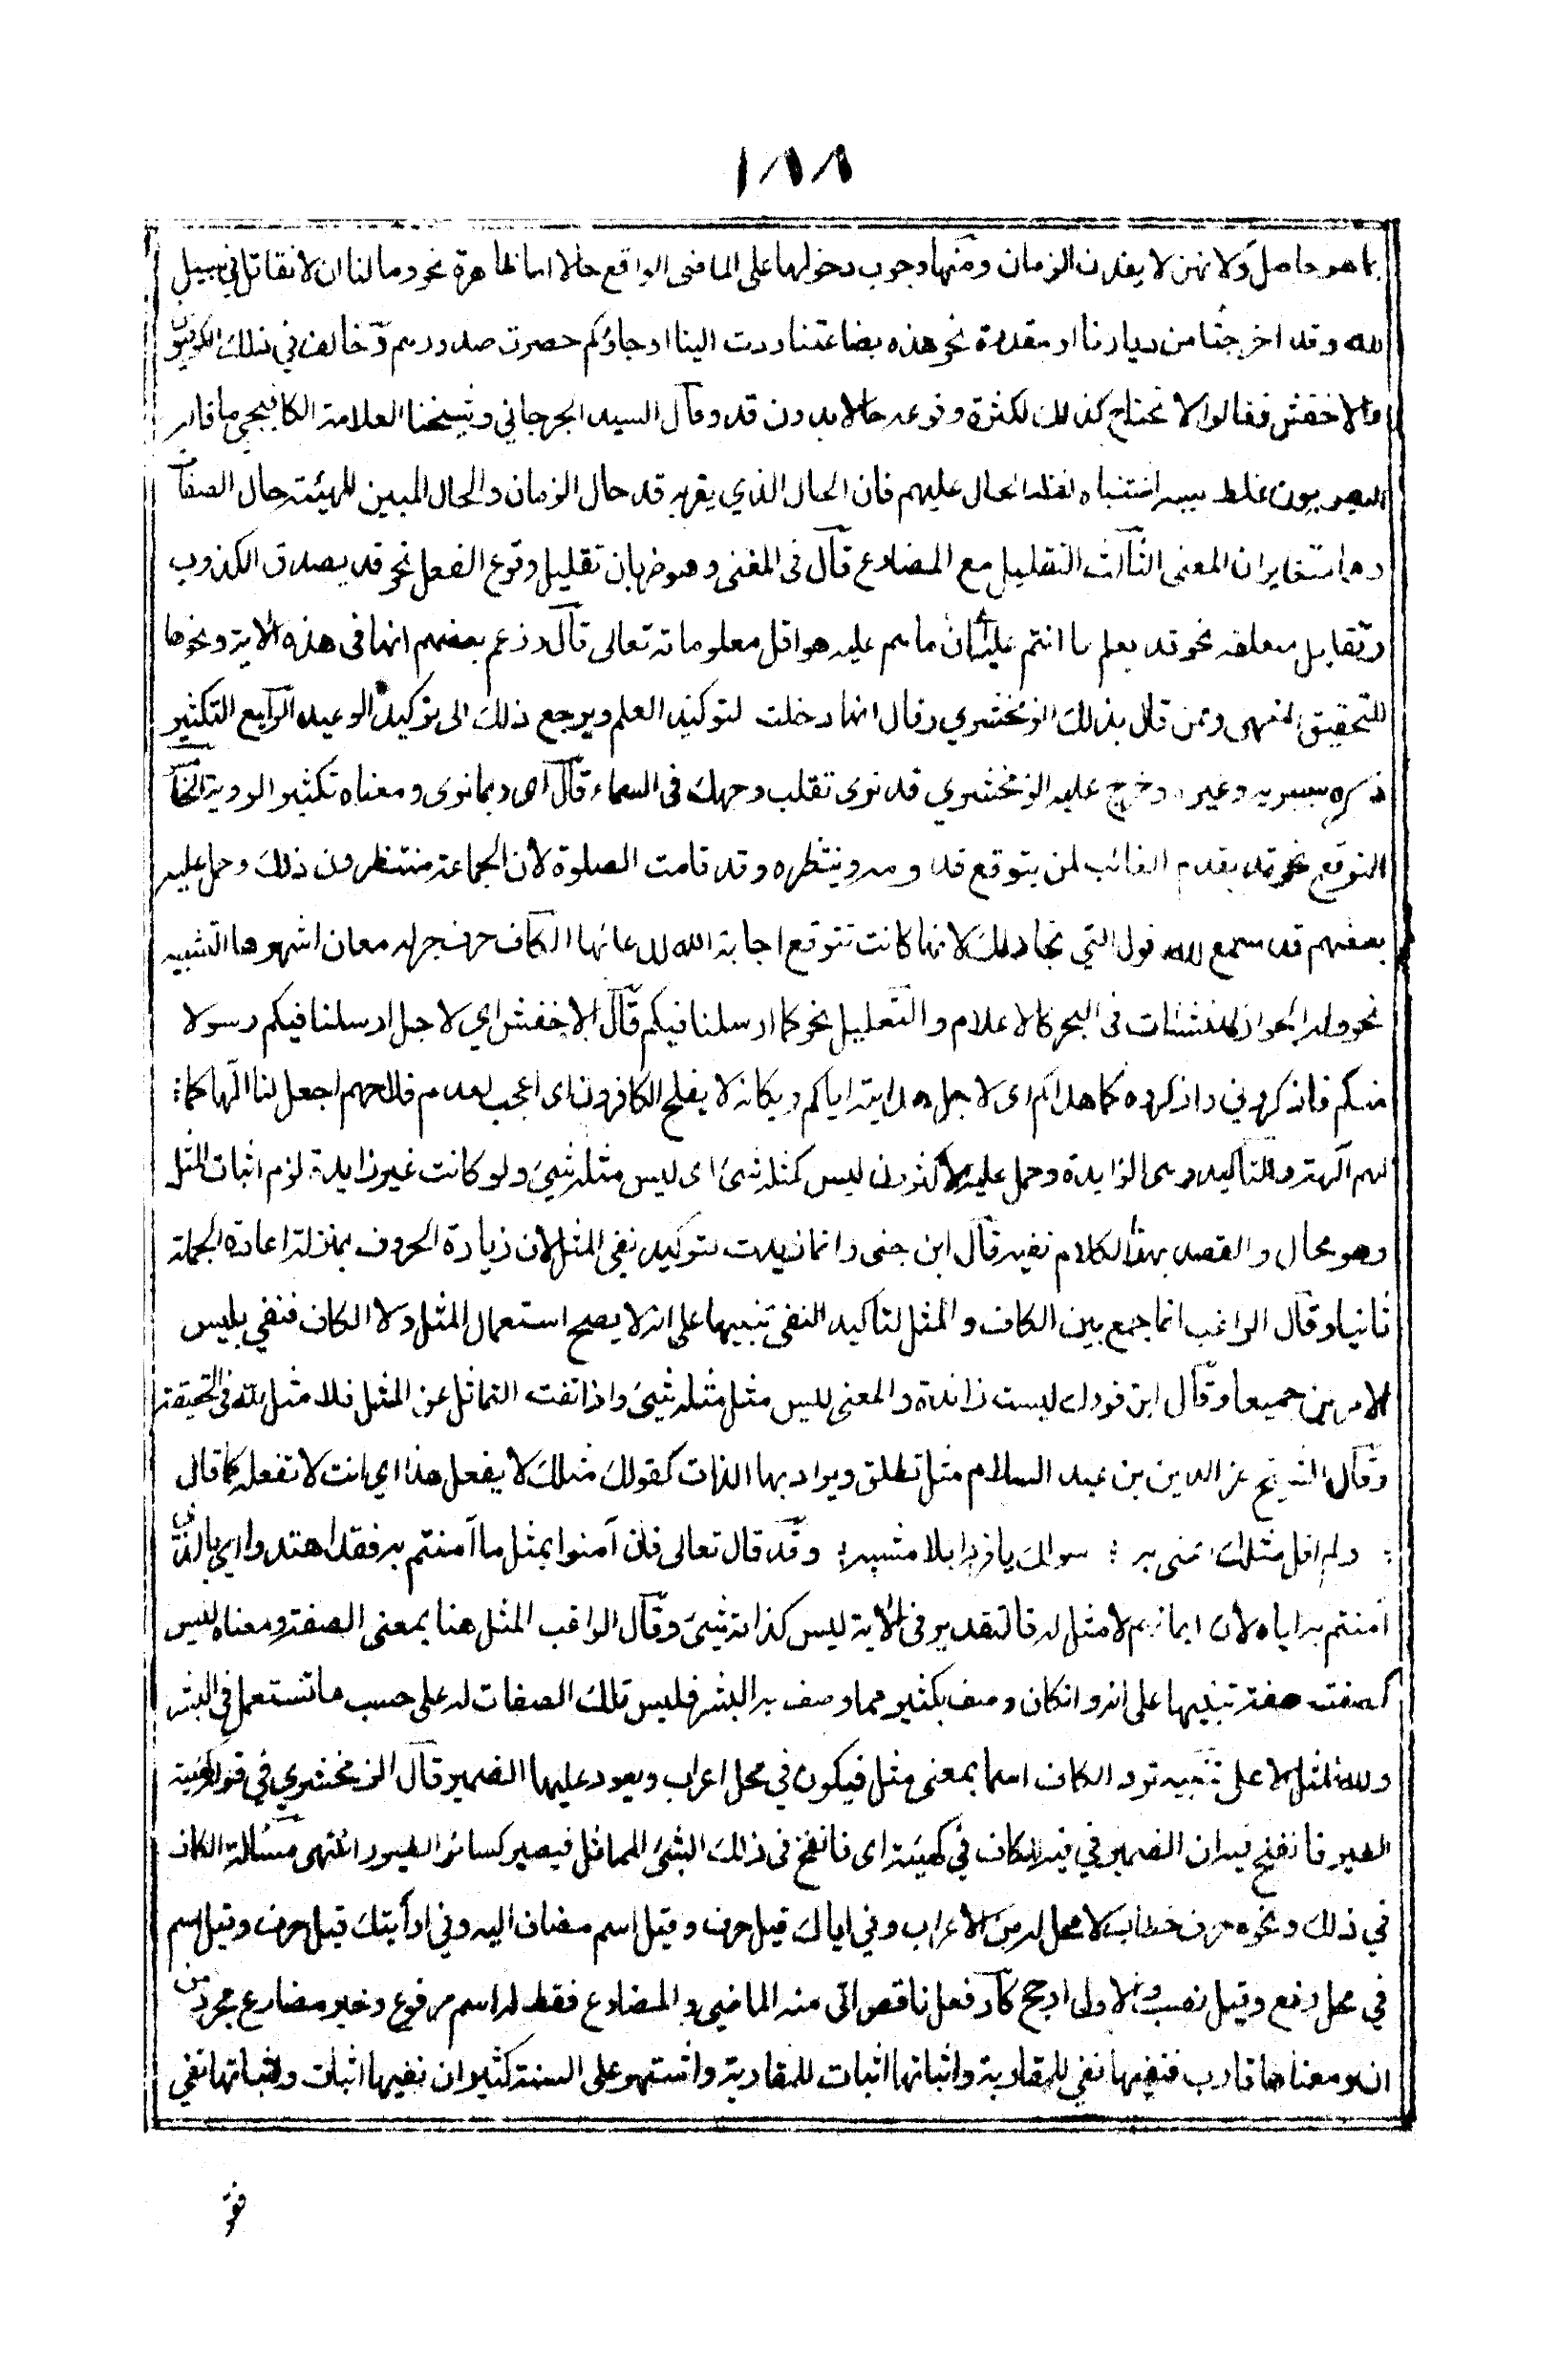 ١٨٨
بما هو حاصل ولانهن لا يفدن الزمان ومنها وجوب دخولها على الماضى الواقع حالا اما ظاهرة نحو وما لنا ان لا نقاتل في سبيل
الله وقد اخرجنا من ديارنا او مقدرة نحو هذه بضاعتنا ردت الينا او جاؤكم حصرت صدورهم وخالف في ذلك الكوفيون
والاخفش فقالوا لا نحتاج كذلك لكثرة وقوعه حالا بدون قد وقال السيد الجرجاني وشيخنا العلامة الكافيجي ما قاله
البصريون غلط سببه اشتباه لفظ الحال عليهم فان الحال الذي يقربه قد حال الزمان والحال المبين للهيئة حال الصفات
وهما متغايران المعنى الثالث التقليل مع المضارع قال فى المغنى وهو ضربان تقليل وقوع الفعل نحو قد يصدق الكذوب
وتقليل متعلقه نحو قد يعلم ما انتم عليه اى ان ما هم عليه هو اقل معلوماته تعالى قال وزعم بعضهم انها فى هذه الاية ونحوها
للتحقيق انتهى وممن قال بذلك الزمخشري وقال انها دخلت لتوكيد العلم ويرجع ذلك الى توكيد الوعيد الرابع التكثير
ذكره سيبويه وغيره وخرج عليه الزمخشري قد نرى تقلب وجهك فى السماء قال اى ربما نرى ومعناه تكثير الروية الخامس
التوقع نحو قد يقدم الغائب لمن يتوقع قدومه وينتظره وقد قامت الصلوة لان الجماعة منتظرون ذلك وحمل عليه
بعضهم قد سمع الله قول التي تجادلك لانها كانت تتوقع اجابة الله لدعائها الكاف حرف جر له معان اشهرها التشبيه
نحو وله الجوار المنشئات فى البحر كالاعلام والتعليل نحو كما ارسلنا فيكم قال الاخفش اي لاجل ارسلنا فيكم رسولا
منكم فاذكروني واذكروه كما هداكم اى لاجل هدايته اياكم ويكانه لا يفلح الكافرون اى اعجب لعدم فلاحهم اجعل لنا الها كما
لهم آلهة وللتاكيد وهى الزايدة وحمل عليه الاكثرون ليس كمثله شئ اى ليس مثله شئ ولو كانت غير زايدة لزم اثبات المثل
وهو محال والقصد بهذا الكلام نفيه قال ابن جنى وانما زيدت لتوكيد نفي المثل لان زيادة الحروف بمنزلة اعادة الجملة
ثانيا وقال الراغب انما جمع بين الكاف والمثل لتاكيد النفى تنبيها على انه لا يصح استعمال المثل ولا الكاف فنفي بليس
الامرين جميعا وقال ابن فورك ليست زائدة والمعنى ليس مثل مثله شئ واذا نفت التماثل عن المثل فلا مثل لله في الحقيقة
وقال الشيخ عز الدين بن عبد السلام مثل تطلق ويراد بها الذات كقولك مثلك لا يفعل هذا اي انت لا تفعله كما قال
؛ ولم اقل مثلك اعنى به ؛ سواك يا فردا بلا مشبه ؛ وقد قال تعالى فان آمنوا بمثل ما آمنتم به فقد اهتدوا اي بالذى
آمنتم به اياه لان ايمانهم لا مثل له فالتقدير فى الاية ليس كذاته شئ وقال الراغب المثل هنا بمعنى الصفة ومعناه ليس
كصفته صفة تنبيها على انه وانكان وصف بكثير مما وصف به البشر فليس تلك الصفات له على حسب ما تستعمل في البشر
ولله المثل الاعلى تنبيه ترد الكاف اسما بمعنى مثل فيكون في محل اعراب ويعود عليها الضمير قال الزمخشري في قوله كهيئة
الطير فانفخ فيه ان الضمير في فيه للكاف في كهيئة اى فانفخ فى ذلك الشئ المماثل فيصير كسائر الطيور انتهى مسئالة الكاف
في ذلك ونحوه حرف خطاب لا محل له من الاعراب وفي اياك قيل حرف وقيل اسم مضاف اليه وفي ارأيتك قيل حرف وقيل اسم
في محل رفع وقيل نصب والاول ارجح كاد فعل ناقص اتى منه الماضي والمضارع فقط له اسم مرفوع وخبر مضارع مجرد من
ان ومعناها قارب فنفيها نفي للمقاربة واثباتها اثبات للمقاربة واشتهر على السنة كثير ان نفيها اثبات واثباتها نفي